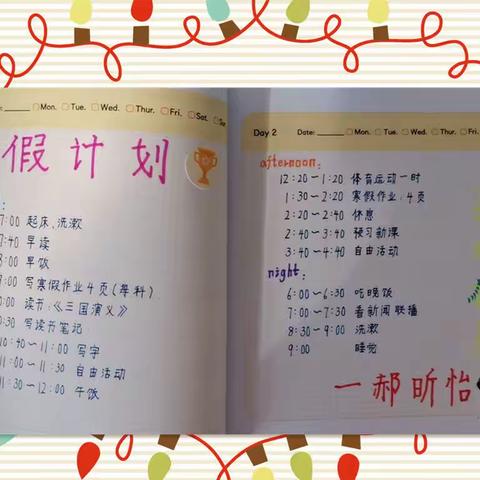 Mon. Tue. Wed. Thur. Fri. Sat. Sun
假计划
7:00 起床、洗漱
7:40 早读
8:00 早饭
9:00 写寒假作业4页(每科)
0:00 读书:《三国演义》
0:30 写读书笔记
10:40～11:00 写字
11:00～11:30 自由活动
11:30～12:00 午饭
Day 2 Date: Mon. Tue. Wed. Thur. Fri.
afternoon:
12:20～1:20 体育运动一时
1:30～2:20 寒假作业:4页
2:20～2:40 休息
2:40～3:40 预习新课
3:40～4:40 自由活动
night:
6:00～6:30 吃晚饭
7:00～7:30 看新闻联播
8:30～9:00 洗漱
9:00 睡觉
一郝昕怡